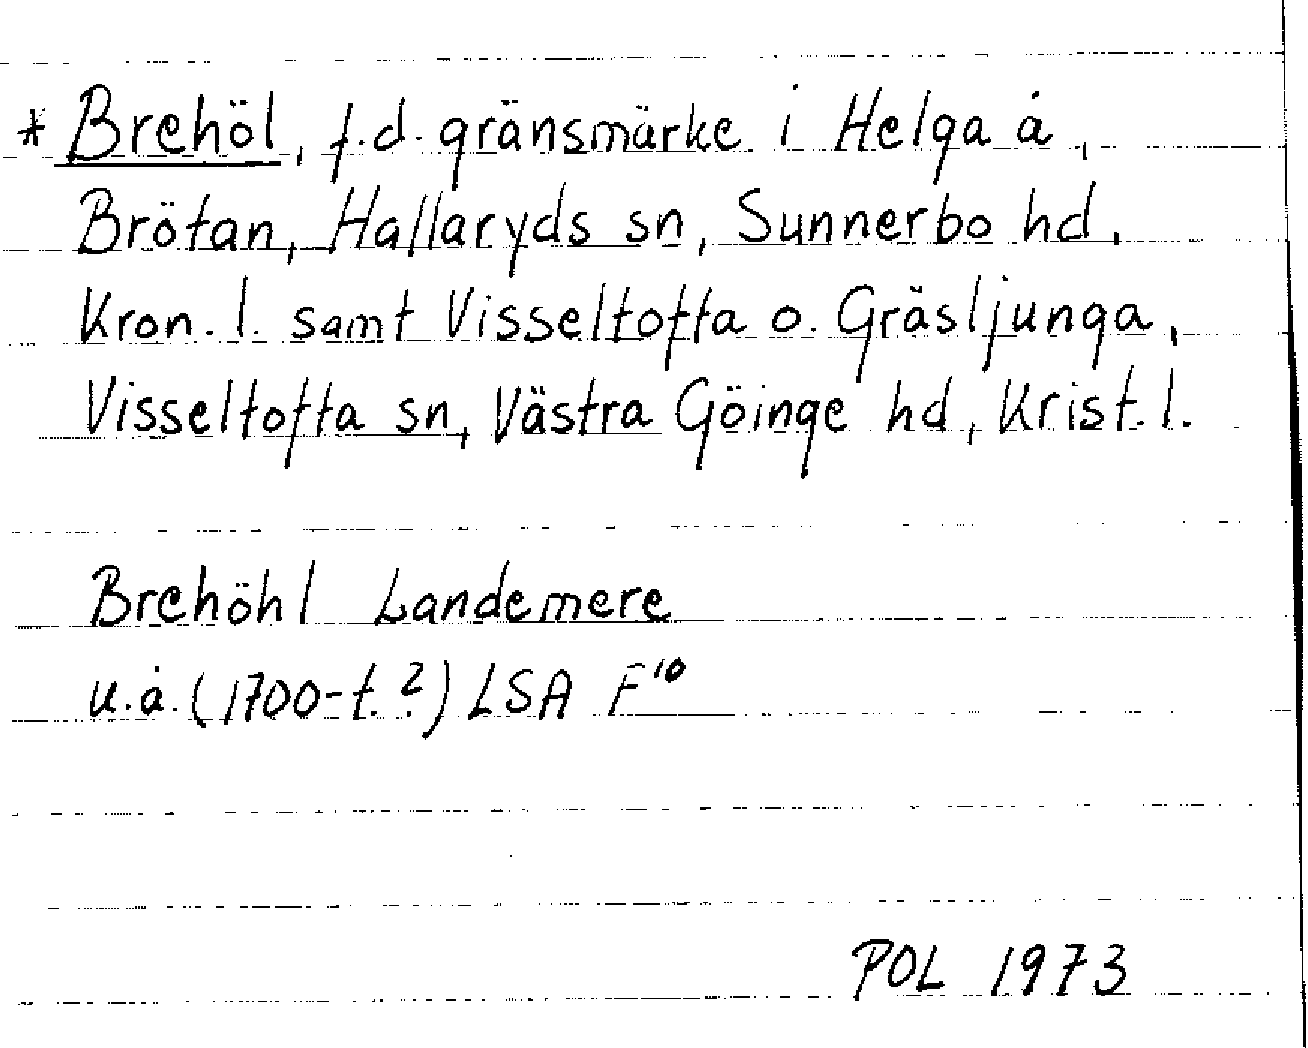 * Brehöl, f.d. gränsmärke i Helga å,
Brötan, Hallaryds sn, Sunnerbo hd,
Kron. l. samt Visseltofta o. Gräsljunga,
Visseltofta sn, Västra Göinge hd, Krist. l.
Brehöhl Landemere
u.å. (1700-t.?) LSA F¹⁰
POL 1973